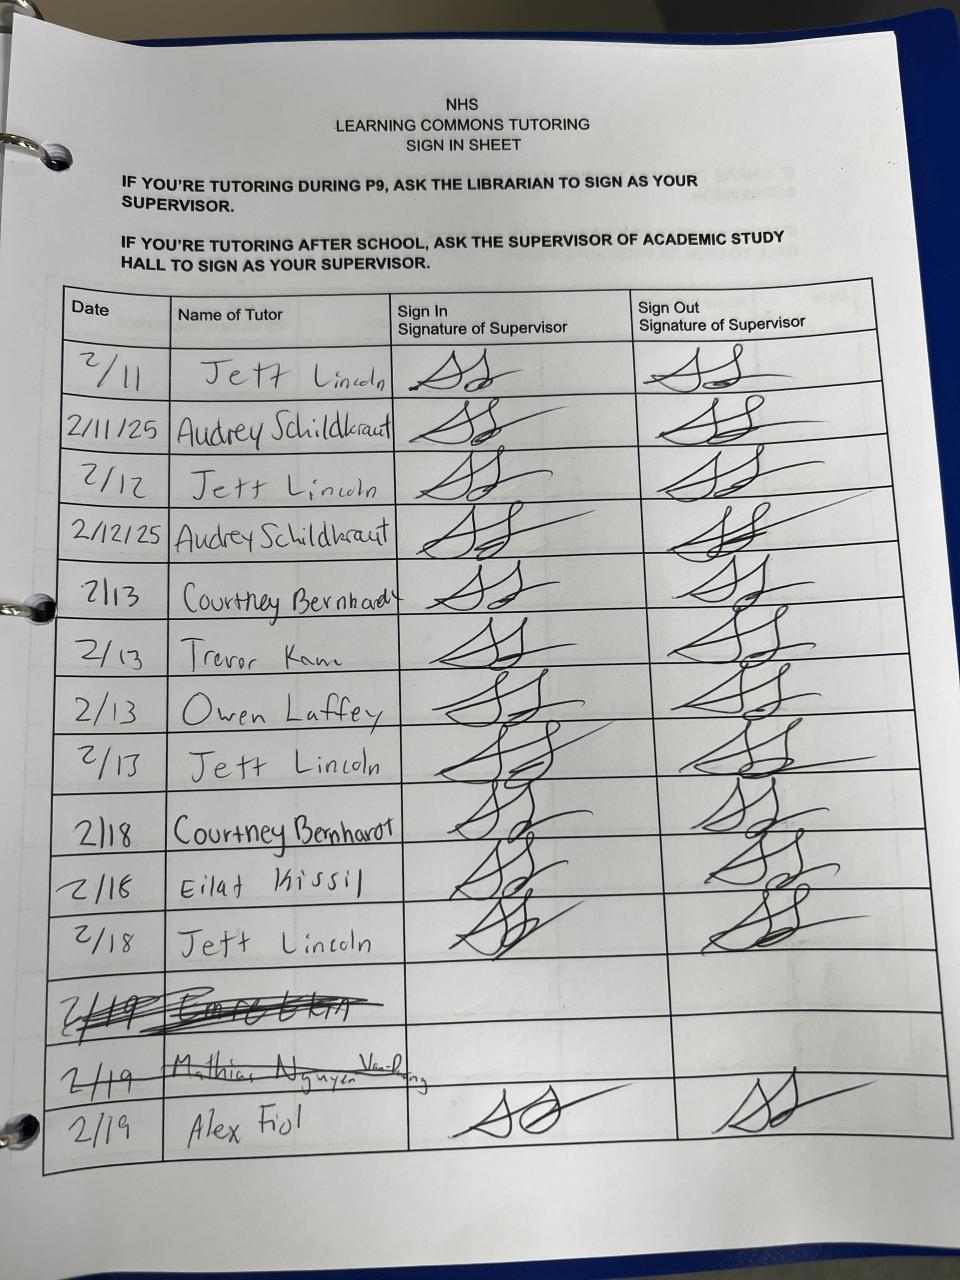 NHS
LEARNING COMMONS TUTORING
SIGN IN SHEET
IF YOU'RE TUTORING DURING P9, ASK THE LIBRARIAN TO SIGN AS YOUR
SUPERVISOR.
IF YOU'RE TUTORING AFTER SCHOOL, ASK THE SUPERVISOR OF ACADEMIC STUDY
HALL TO SIGN AS YOUR SUPERVISOR.
Date Name of Tutor Sign In Signature of Supervisor Sign Out Signature of Supervisor
2/11 Jett Lincoln
2/11/25 Audrey Schildkraut
2/12 Jett Lincoln
2/12/25 Audrey Schildkraut
2/13 Courtney Bernhardt
2/13 Trevor Kam
2/13 Owen Laffey
2/13 Jett Lincoln
2/18 Courtney Bernhardt
2/18 Eilat Kissil
2/18 Jett Lincoln
2/19
2/19 Mathias Nguyen
2/19 Alex Fiol